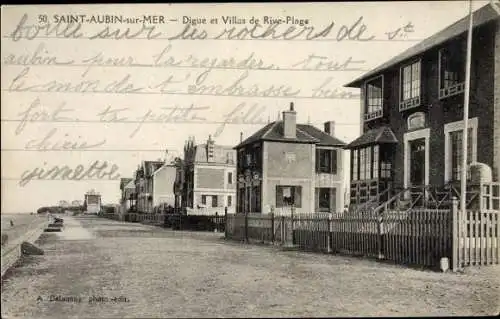 50. SAINT-AUBIN-sur-MER — Digue et Villas de Rive-Plage
sur les rochers de st
aubin pour la regarder. tout
le monde t'embrasse bien
fort. ta petite fille
chérie
ginette
A. Delaunay photo-édit.